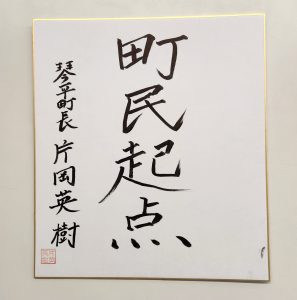 町民起点
琴平町長 片岡英樹